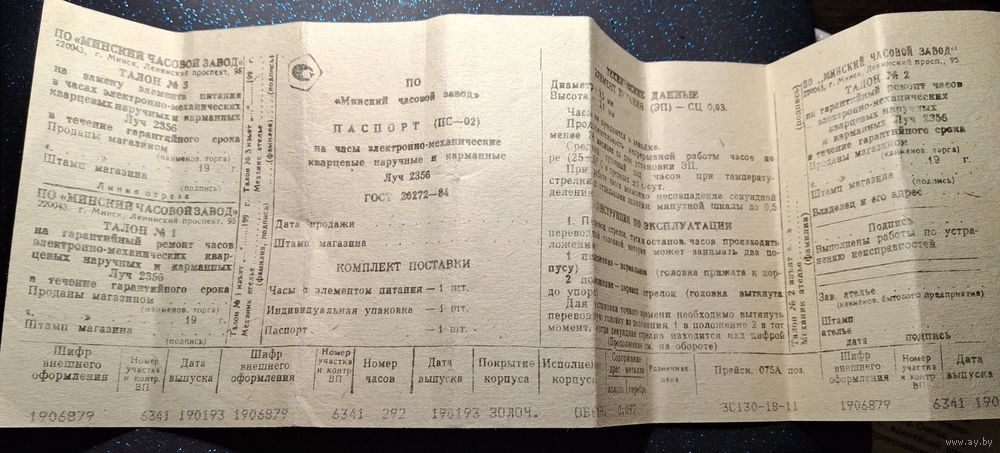 ПО «МИНСКИЙ ЧАСОВОЙ ЗАВОД»
220043, г. Минск, Ленинский проспект, 95
ТАЛОН № 3
на замену элемента питания
в часах электронно-механических
кварцевых наручных и карманных
Луч 2356
в течение гарантийного срока
Проданы магазином
(наименов. торга)
«. » 19 г.
Штамп магазина
(подпись)
Линия отреза
ПО «МИНСКИЙ ЧАСОВОЙ ЗАВОД»
220043 г. Минск, Ленинский проспект, 95
ТАЛОН № 1
на гарантийный ремонт часов
электронно-механических квар-
цевых наручных и карманных
Луч 2356
в течение гарантийного срока
Проданы магазином
(наименов. торга)
«. » 19 г.
Штамп магазина
(подпись)
Талон № 3 изъят « . » 199 г.
Механик ателье
(фамилия) (подпись)
Талон № 1 изъят « » 199 г.
Механик ателье
(фамилия, подпись)
ПО
«Минский часовой завод»
ПАСПОРТ (ПС—02)
на часы электронно-механические
кварцевые наручные и карманные
Луч 2356
ГОСТ 26272—84
Дата продажи
Штамп магазина
КОМПЛЕКТ ПОСТАВКИ
Часы с элементом питания — 1 шт.
Индивидуальная упаковка — 1 шт.
Паспорт — 1 шт.
ТЕХНИЧЕСКИЕ ДАННЫЕ
Диаметр мм
Высота мм
(ЭП) — СЦ 0,03.
непрерывной работы часов не
менее
установки ЭП.
часов при температу-
ре (25
При
несовпадение секундной
стрелки
минутной шкалы до 0,5
деления
ИНСТРУКЦИЯ ПО ЭКСПЛУАТАЦИИ
1. Перевод стрелок, пуск и останов. часов производить
переводной головкой, которая может занимать два по-
ложения:
1 (головка прижата к кор-
пусу)
2 перевод стрелок (головка вытянута
до упора)
Для установки точного времени необходимо вытянуть
переводную головку из положения 1 в положение 2 в тот
момент, когда секундная стрелка находится над цифрой
(Продолжение см. на обороте)
ПО „МИНСКИЙ ЧАСОВОЙ ЗАВОД“
220043, г. Минск, Ленинский просп., 95
ТАЛОН № 2
на гарантийный ремонт часов
электронно-механических
кварцевых наручных
и карманных Луч 2356
в течение гарантийного срока
Проданы магазином
(наименов. торга)
« . » 19 г.
Штамп магазина
(подпись)
Владелец и его адрес
Подпись
Выполнены работы по устра-
нению неисправностей
Зав. ателье
(наименов. бытового предприятия)
Штамп
ателье
дата подпись
Талон № 2 изъят « . »
Механик ателье
(фамилия) (подпись)
Шифр внешнего оформления
Номер участка и контр. ВП
Дата выпуска
Шифр внешнего оформления
Номер участка и контр. ВП
Номер часов
Дата выпуска
Покрытие корпуса
Исполнение корпуса
Содержание драг. металла
золото серебро
Розничная цена
Прейск. 075А поз.
Шифр внешнего оформления
Номер участка и контр. ВП
Дата выпуска
1906879 6341 190193 1906879 6341 292 190193 ЗОЛОЧ. 0.097 3С130-18-11 1906879 6341 190
www.ay.by